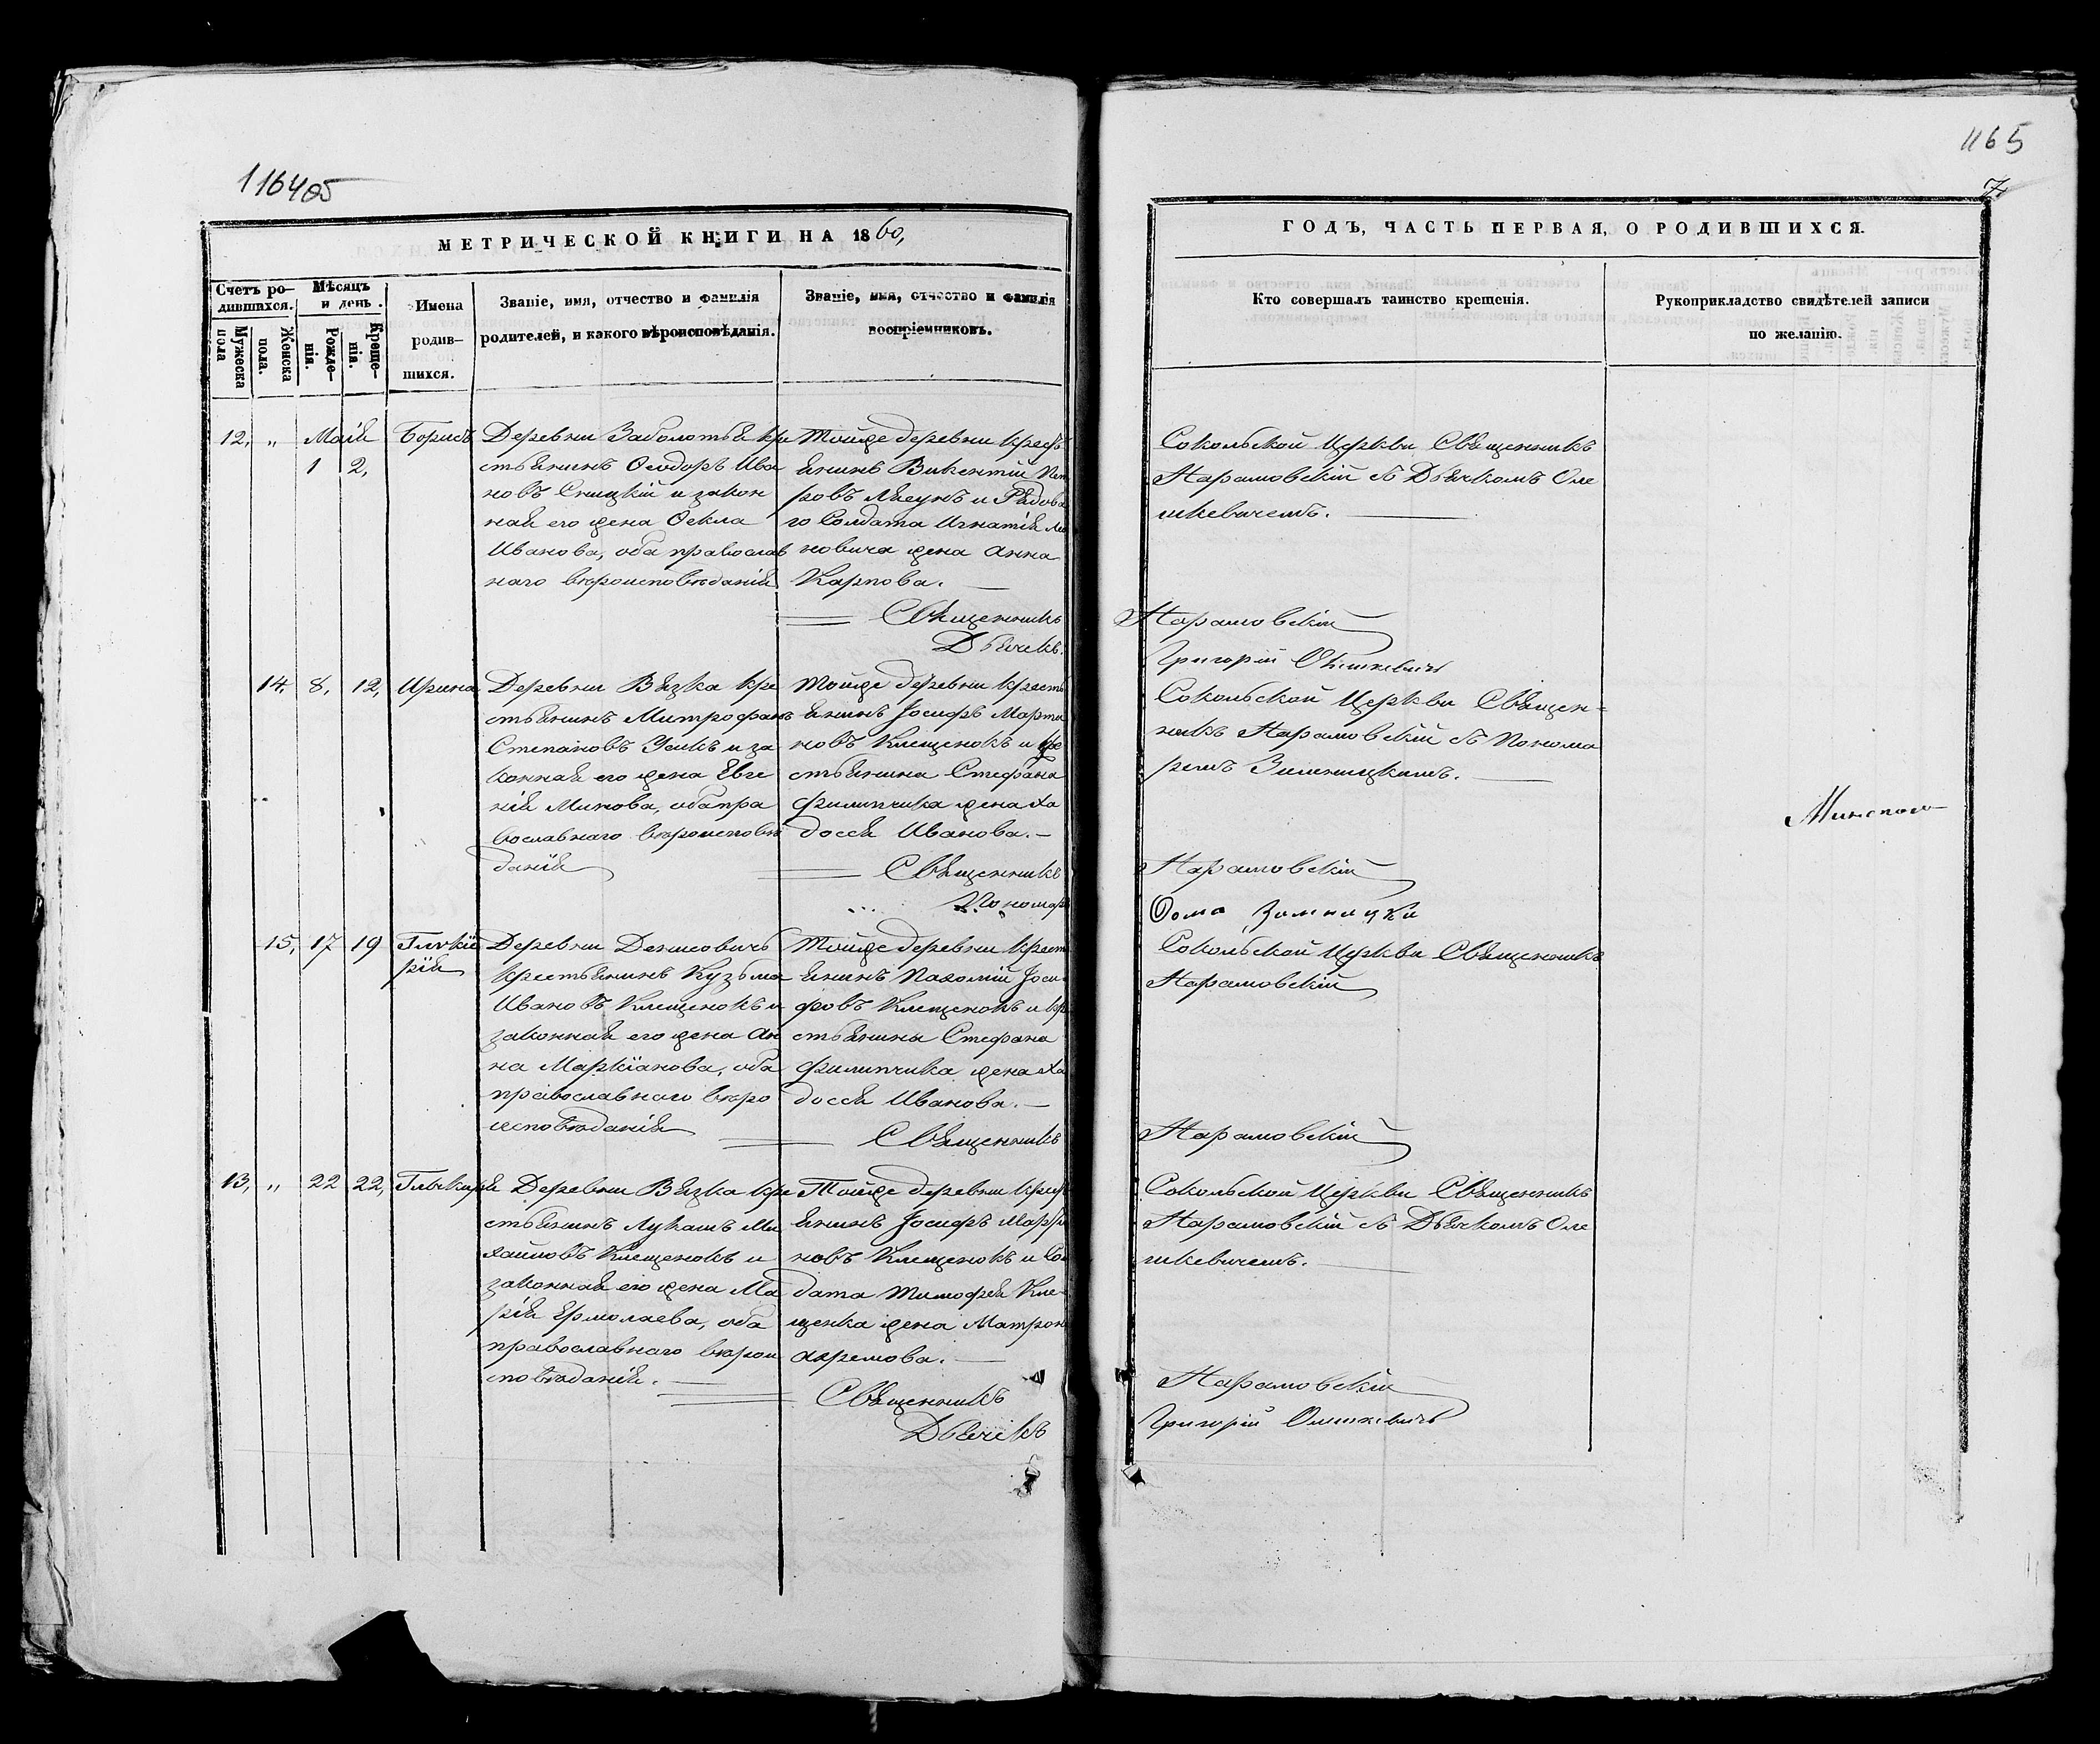 1164об
МЕТРИЧЕСКОЙ КНИГИ НА 1860,
Счетъ ро-
дившихся.
Мужеска
пола
Женска
пола.
Мѣсяцъ
и день.
Рожде-
нія.
Креще-
нія.
Имена
родив-
шихся.
Званіе, имя, отчество и фамилія
родителей, и какого вѣроисповѣданія.
Званіе, имя, отчество и фамилія
воспріемниковъ.
12, „ Маія
1 2,
Борисъ
Деревни Заболотья кре
стьянинъ Ѳеодоръ Ива
новъ Сницкій и закон
ная его жена Ѳекла
Иванова, оба православ
наго вѣроисповѣданія
Тойже деревни крест
янинъ Викентій Пет
ровъ Лясунъ и Рядова
го Солдата Игнатія
новича жена Анна
Карпова.
Священникъ
Дьячекъ.
14, 8, 12, Ирина
Деревни Вязка кре
стьянинъ Митрофанъ
Степановъ Усикъ и за
конная его жена Евге
нія Минова, оба пра
вославнаго вѣроисповѣ
данія
Тойже деревни кресть
янинъ Іосифъ Марти
новъ Клещенокъ и кре
стьянина Стефана
Филипчика жена Хо
досся Иванова.
Священникъ
Пономарь
15, 17 19 Гликѣ
рія
Деревни Денисовичъ
крестьянинъ Кузьма
Ивановъ Клещенокъ и
законная его жена Ан
на Маркіанова, оба
православнаго вѣро
исповѣданія
Тойже деревни крест
янинъ Пахомій Іоси
фовъ Клещенокъ и кре
стьянины Стефана
Филипчика жена Хо
досся Иванова.
Священникъ
13, „ 22 22, Гликерій
Деревни Вязка кре
стьянинъ Лукашъ Ми
хайловъ Клещенокъ и
законная его жена Ма
рія Ермолаева, оба
православнаго вѣрои
сповѣданія.
Тойже деревни крест
янинъ Іосифъ Марти
новъ Клещенокъ и Сол
дата Тимофея Кле-
щенка жена Матрон
Ахремова.
Священникъ
Дьячекъ
1165
7.
ГОДЪ, ЧАСТЬ ПЕРВАЯ, О РОДИВШИХСЯ.
Кто совершалъ таинство крещенія.
Рукоприкладство свидѣтелей записи
по желанію.
Сокольской Церкви Священникъ
Нарановскій съ Дьячкомъ Оле
шкевичемъ.
Нарановскій
Григорій Олешкевичъ
Сокольской Церкви Священ-
никъ Нарановскій съ Понома
ремъ Зимницкимъ.
Нарановскій
Ѳома Зимницки
Сокольской Церкви Священникъ
Нарановскій
Нарановскій
Сокольской Церкви Священникъ
Нарановскій съ Дьячкомъ Оле
шкевичемъ.
Нарановскій
Григорій Олешкевичъ
Минскаго